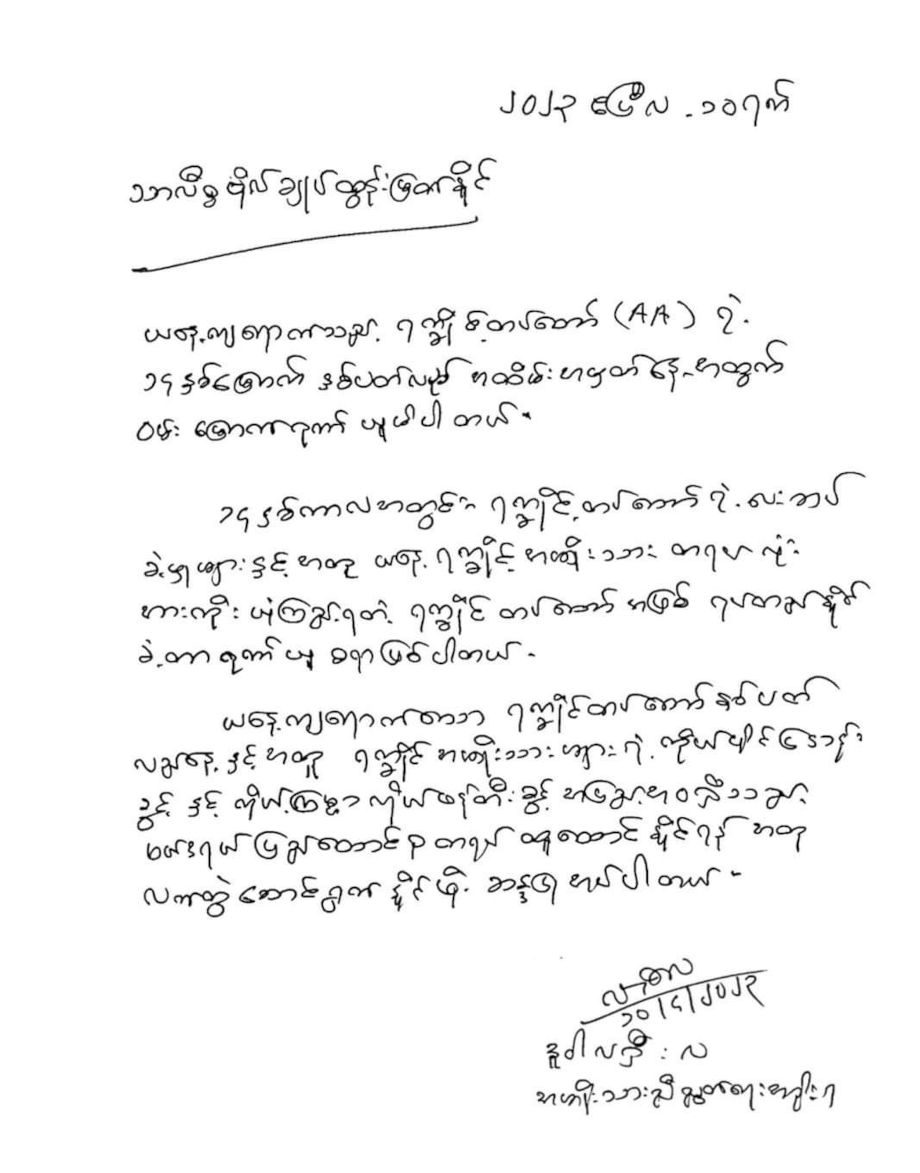 ၂၀၂၃ ဧပြီလ - ၁၀ ရက်
သာလီစွ ဗိုလ်ချုပ်ထွန်းမြတ်နိုင်
ယနေ့ကျရောက်သည့် ရက္ခိုင့်တပ်တော် (AA) ရဲ့
၁၄ နှစ်မြောက် နှစ်ပတ်လည် အထိမ်းအမှတ်နေ့အတွက်
ဝမ်းမြောက်ဂုဏ်ယူမိပါတယ်။
၁၄ နှစ်ကာလအတွင်း ရက္ခိုင့်တပ်တော်ရဲ့
များနှင့်အတူ ယနေ့ ရက္ခိုင့်အမျိုးသား တရပ်လုံး
အားကိုး ယုံကြည်ရတဲ့ ရက္ခိုင့်တပ်တော်အဖြစ် ရပ်တည်နိုင်
ခဲ့တာ ဂုဏ်ယူစရာဖြစ်ပါတယ်။
ယနေ့ကျရောက်သော ရက္ခိုင့်တပ်တော် နှစ်ပတ်
လည်နေ့နှင့်အတူ ရက္ခိုင်အမျိုးသားများရဲ့ ကိုယ်ပိုင်ပြဋ္ဌာန်း
ခွင့်နှင့် ကိုယ့်ကြမ္မာကိုယ်ဖန်တီးခွင့် အပြည့်အဝရှိသည့်
ဖက်ဒရယ်ပြည်ထောင်စုတရပ် ထူထောင်နိုင်ရန် အတူ
လက်တွဲဆောင်ရွက်နိုင်ဖို့ ဆန္ဒပြုအပ်ပါတယ်။
၁၀/၄/၂၀၂၃
ဒူဝါလရှီးလ
အမျိုးသားညီညွတ်ရေးအစိုးရ